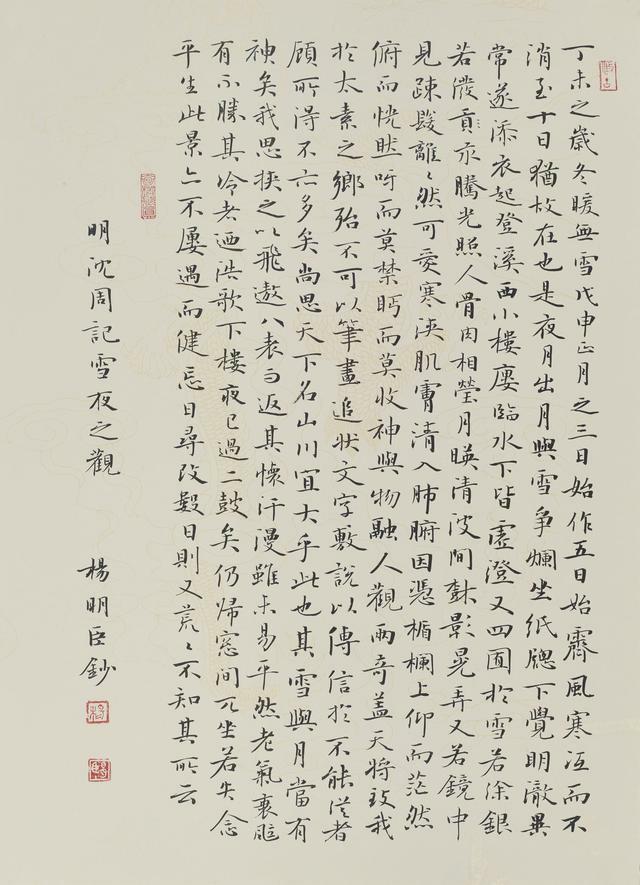 丁未之歲冬暖無雪戊申正月之三日始作五日始霽風寒沍而不
消至十日猶故在也是夜月出月與雪爭爛坐紙牕下覺明澈異
常遂添衣起登溪西小樓廔臨水下皆虛澄又四囿於雪若涂銀
若潑貢汞騰光照人骨肉相瑩月暎清波間樹影晃弄又若鏡中
見疎髮離〻然可愛寒浹肌膚清入肺腑因憑楯欄上仰而茫然
俯而恍然呀而莫禁眄而莫收神與物融人觀兩奇蓋天將致我
於太素之鄉殆不可以筆畫追狀文字敷說以傳信於不能從者
顧所得不亦多矣尚思天下名山川宜大乎此也其雪與月當有
神矣我思挾之以飛遨八表而返其懷汗漫雖未易平然老氣衰颯
有不勝其冷者迺浩歌下樓夜已過二鼓矣仍歸窓間兀坐若失念
平生此景亦不屢遇而健忘日尋改數日則又荒〻不知其所云
明沈周記雪夜之觀
楊明臣鈔